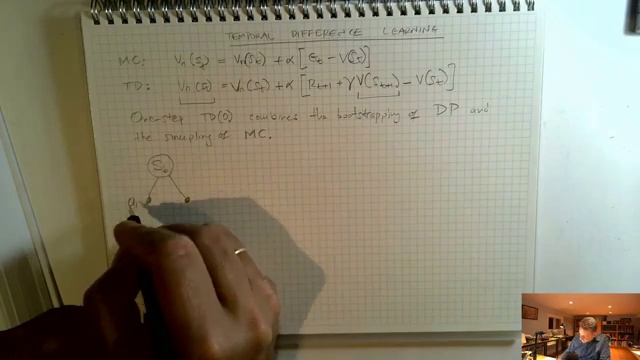 TEMPORAL DIFFERENCE LEARNING
MC: Vπ(St) = Vπ(St) + α [Gt − V(St)]
TD: Vπ(St) = Vπ(St) + α [Rt+1 + γV(St+1) − V(St)]
One-step TD(0) combines the bootstrapping of DP and
the sampling of MC.
St
a1